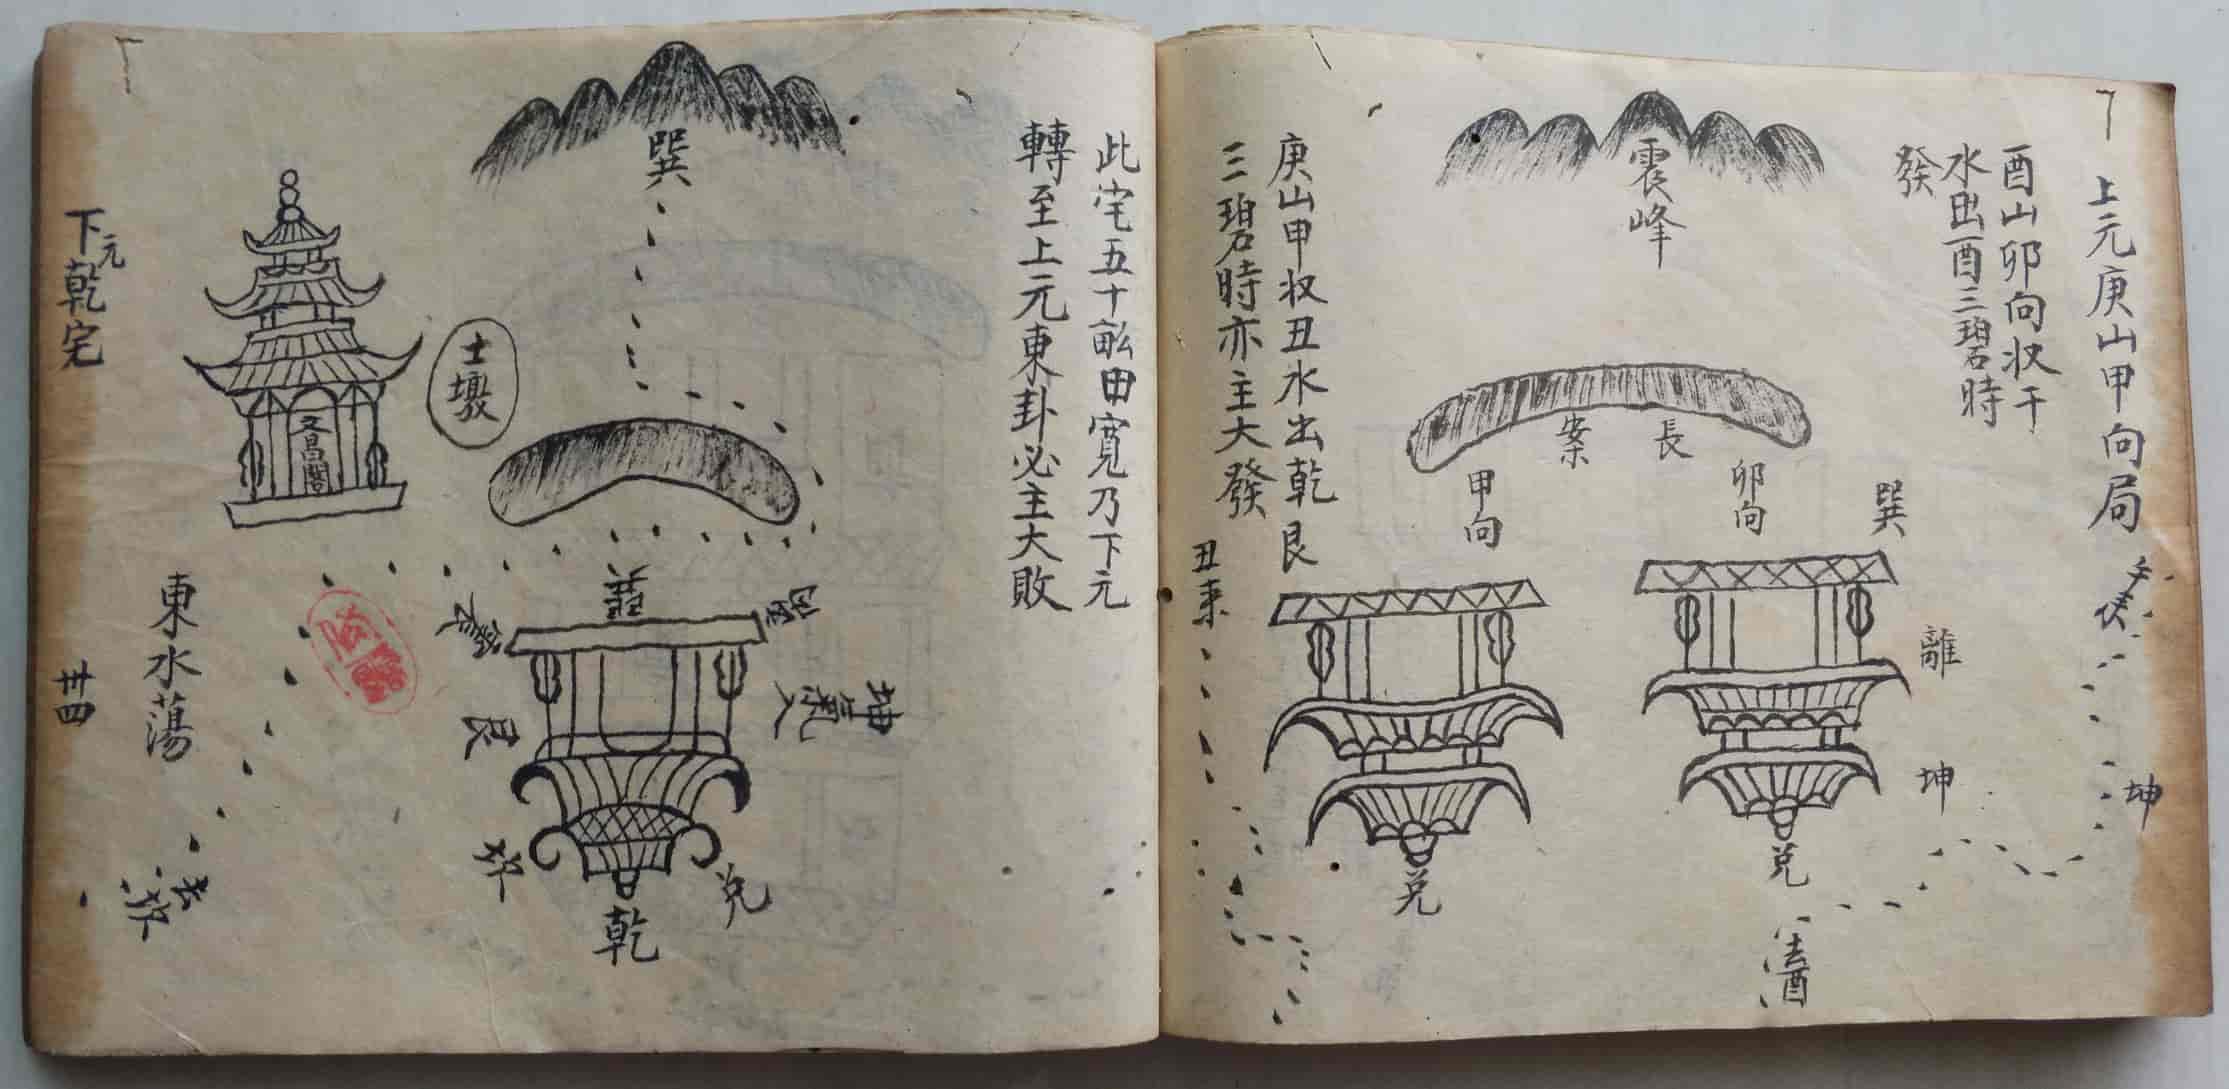 上元庚山甲向局
酉山卯向收干
水出酉三碧時
發
震峰
庚山甲收丑水出乾艮
三碧時亦主大發
長
案
卯向
甲向
巽
離
坤
坤
兌
兌
去酉
丑来
此宅五十畝田寬乃下元
轉至上元東卦必主大敗
巽
土墩
文昌閣
坤氣
艮
坎
兌
乾
東水蕩
去坎
下元乾宅
卅四